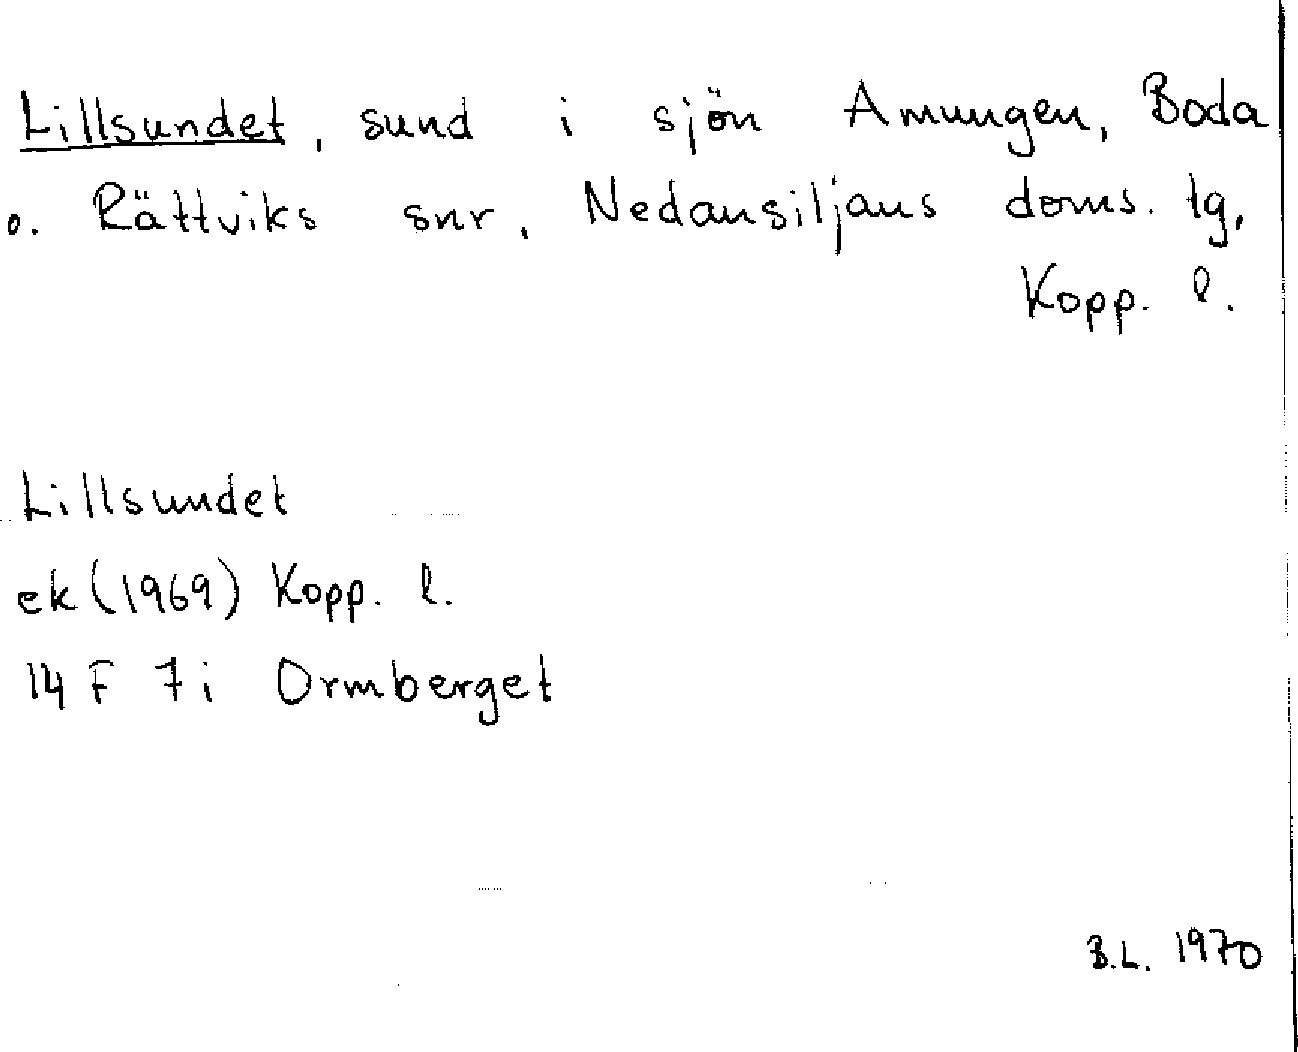 Lillsundet, sund i sjön Amungen, Boda
o. Rättviks snr, Nedansiljans doms. tg,
Kopp. l.
Lillsundet
ek (1969) Kopp. l.
14 F 7i Ormberget
B.L. 1970